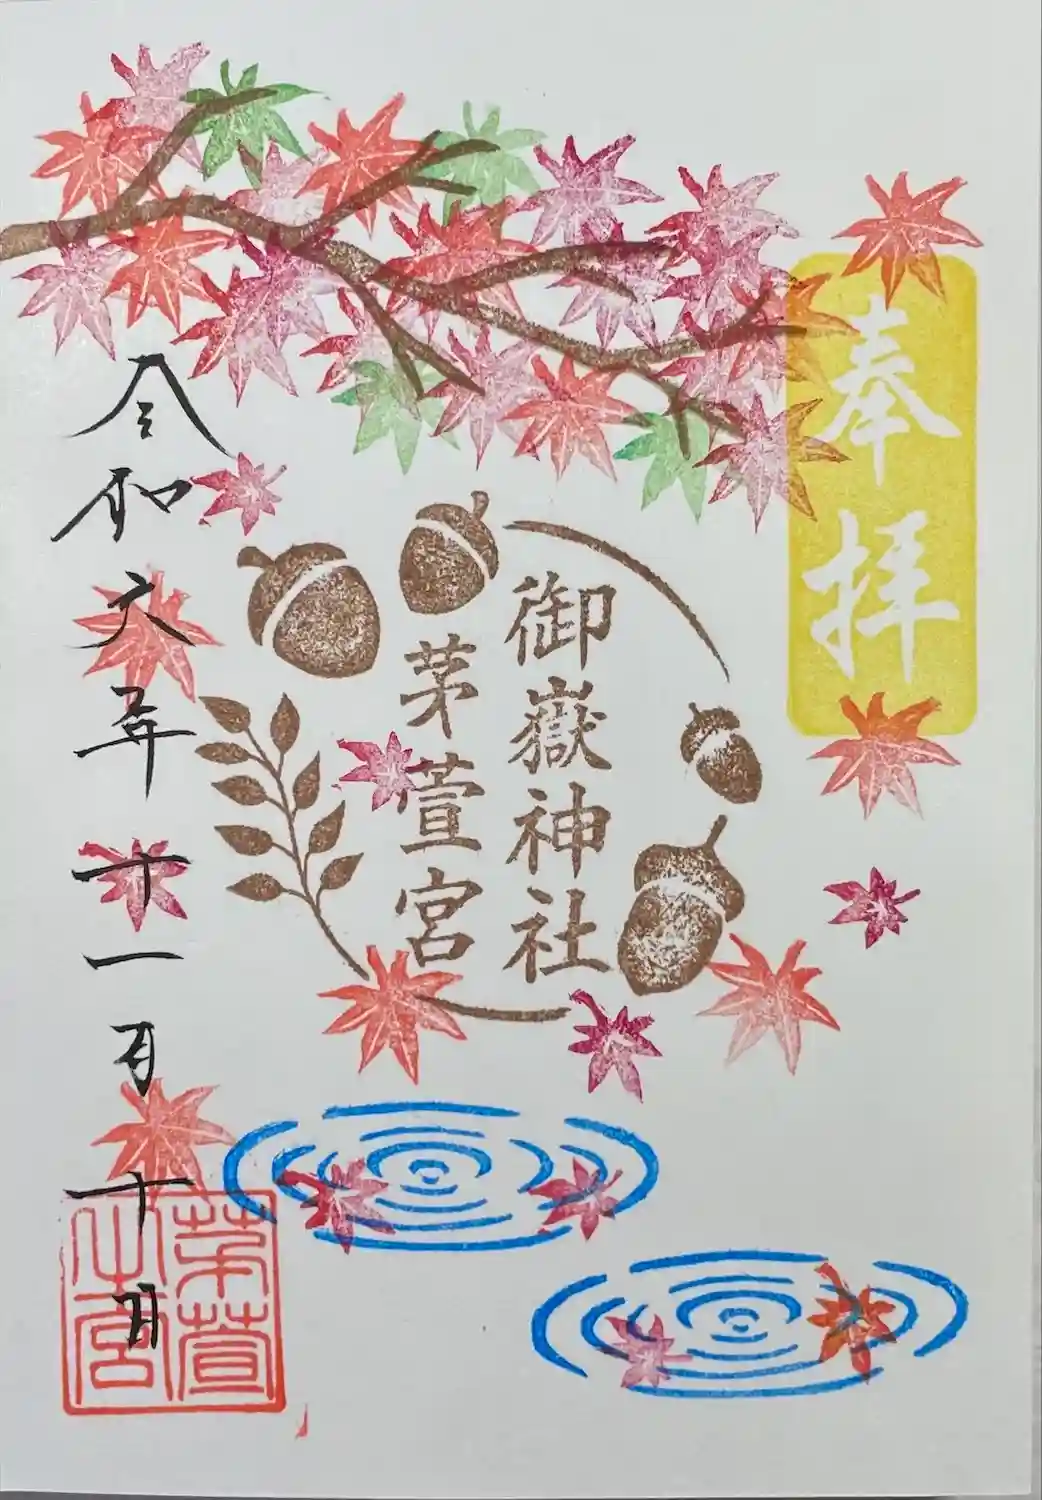 奉拝
御嶽神社
茅萱宮
令和六年十一月十日
茅萱之宮